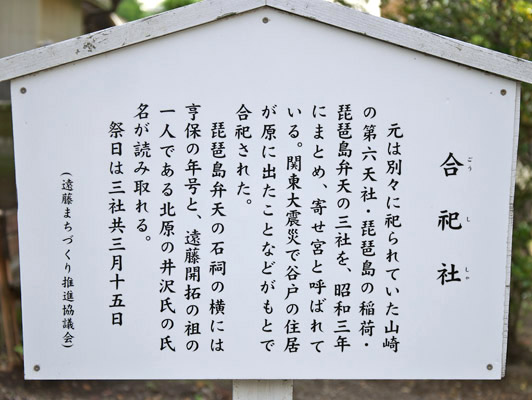 合祀社
ごうししゃ
元は別々に祀られていた山崎
の第六天社・琵琶島の稲荷・
琵琶島弁天の三社を、昭和三年
にまとめ、寄せ宮と呼ばれて
いる。関東大震災で谷戸の住居
が原に出たことなどがもとで
合祀された。
琵琶島弁天の石祠の横には
亨保の年号と、遠藤開拓の祖の
一人である北原の井沢氏の氏
名が読み取れる。
祭日は三社共三月十五日
(遠藤まちづくり推進協議会)